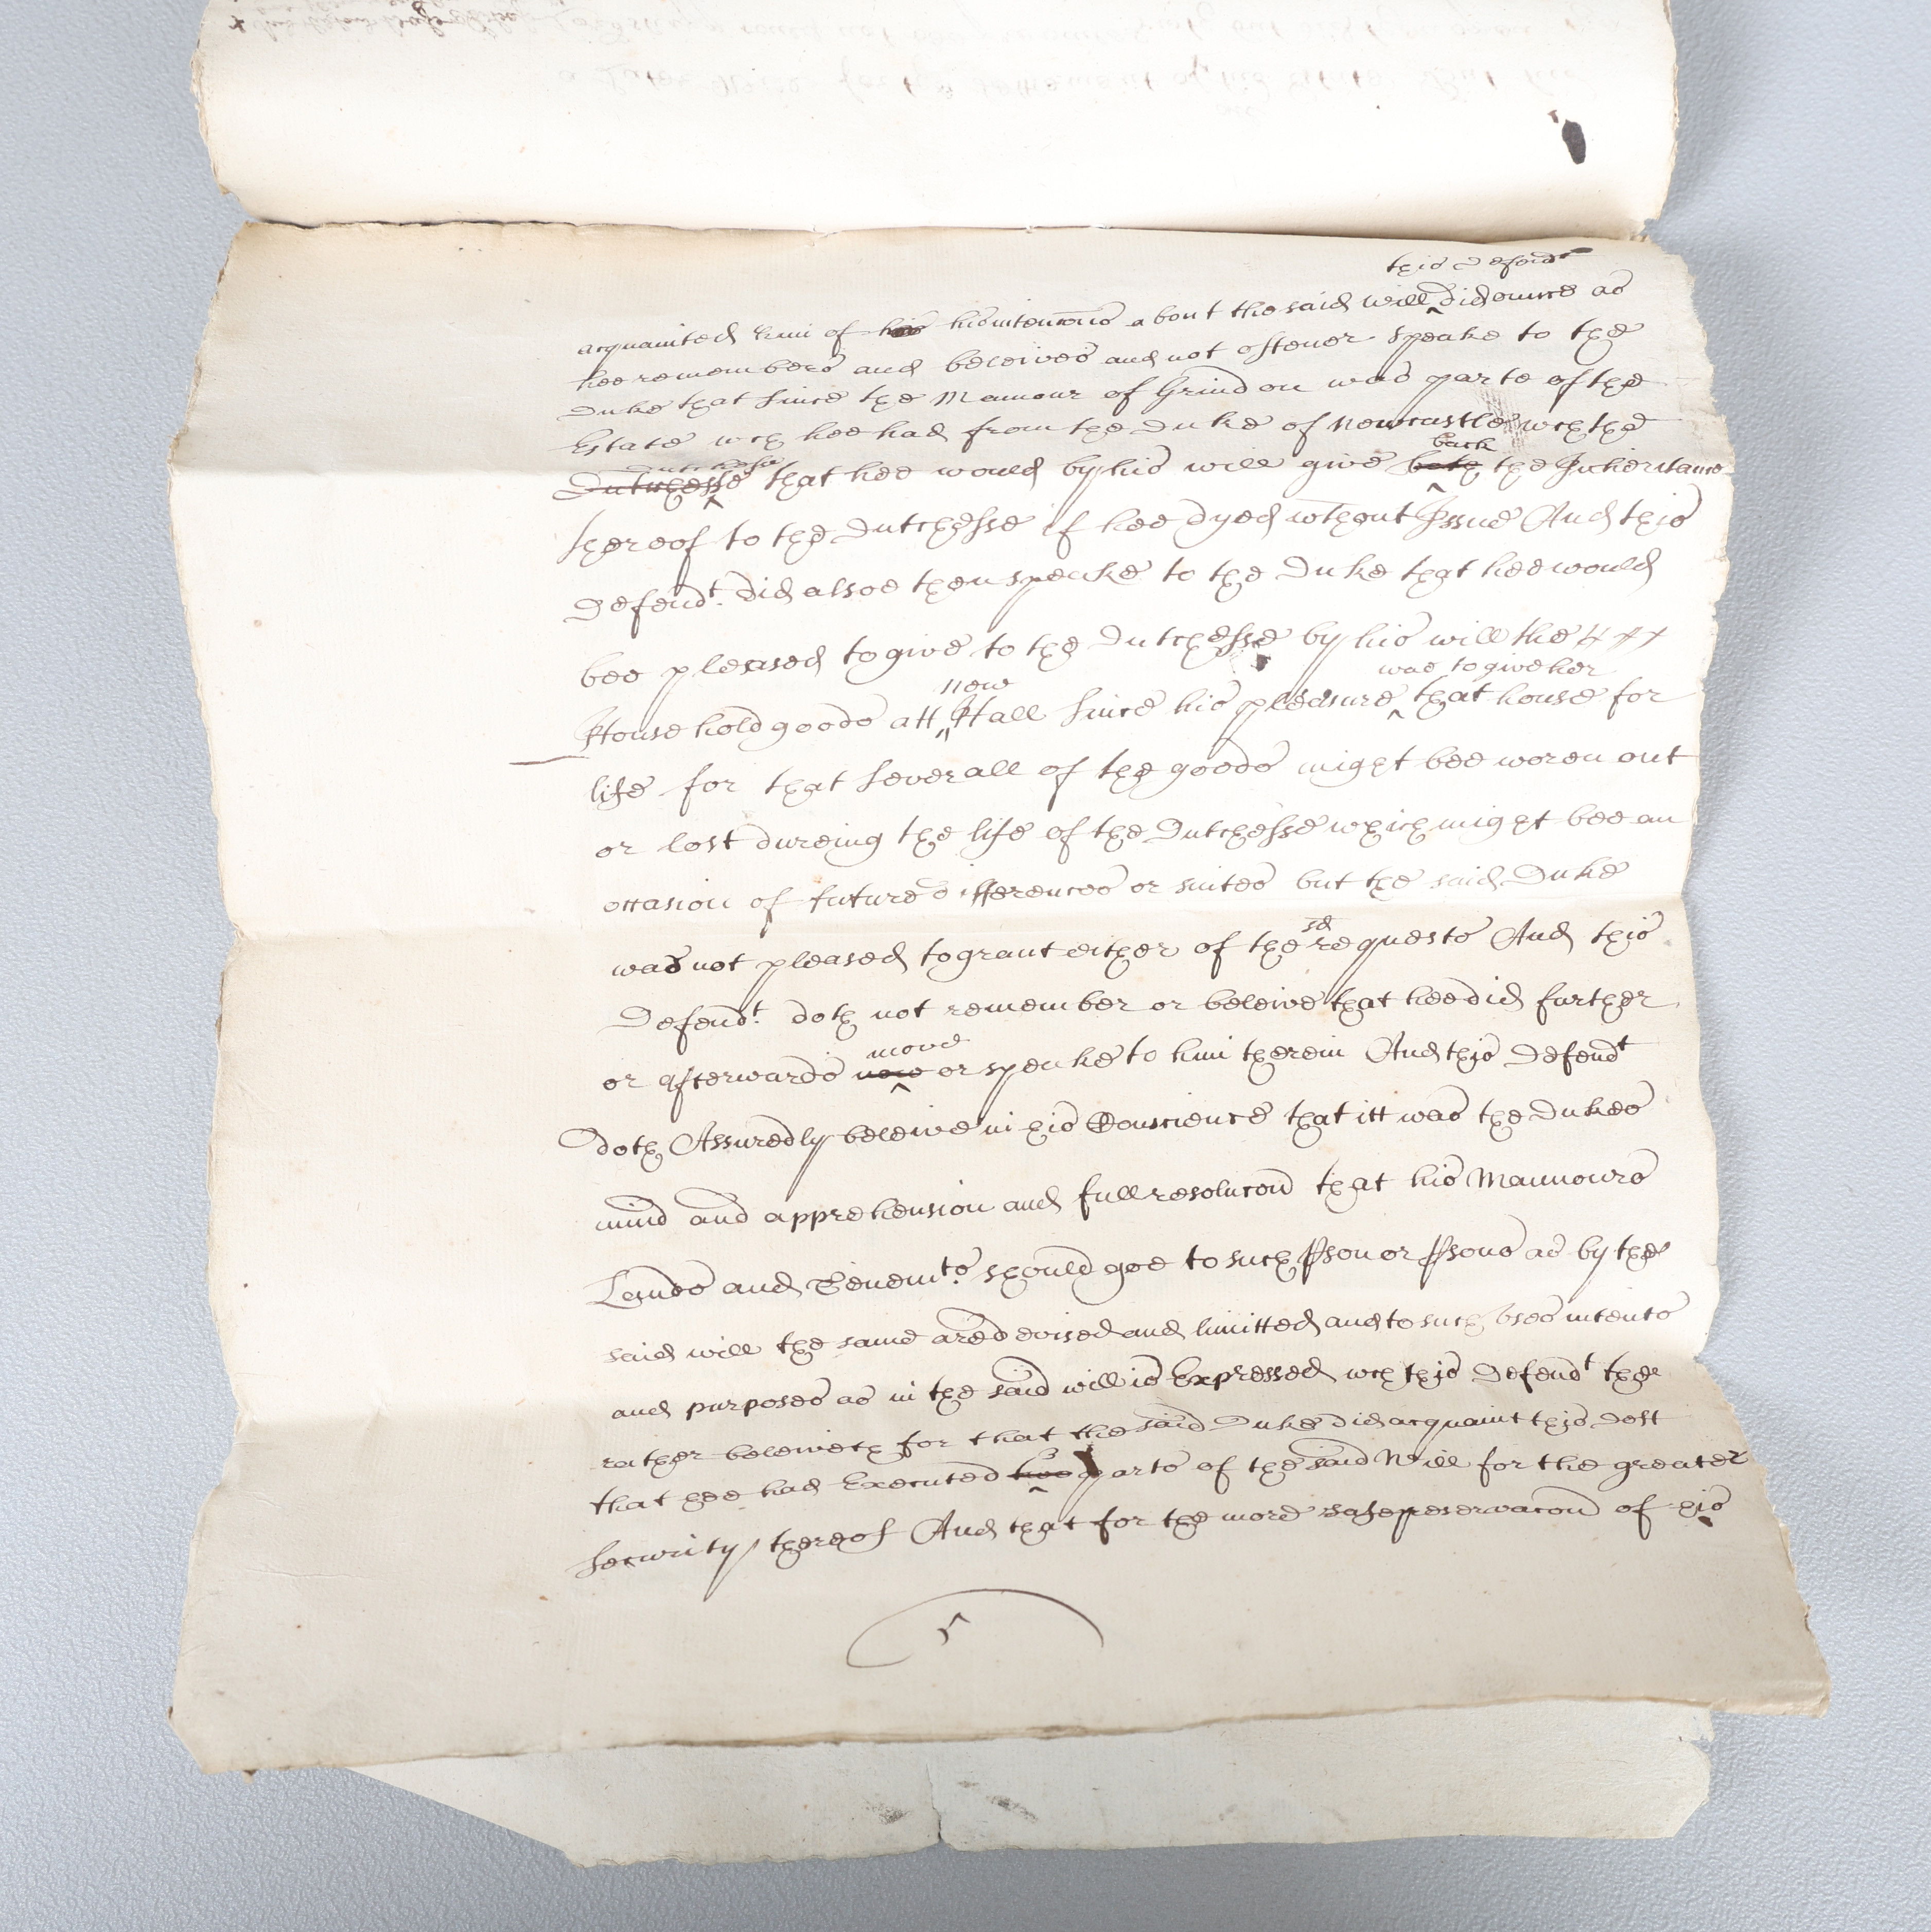 this Defendt
acquainted him of his his intencons about the said will did once as
hee remembers and beleives and not oftener speake to the
Duke that since the Mannour of Grindon was parte of the
Estate wch hee had from the Duke of Newcastle wth the
back
Dutchesse that hee would by his will give both the Inheritance
thereof to the Dutchesse if hee dyed wthout Issue And this
Defendt. did alsoe then speake to the Duke that hee would
bee pleased to give to the Dutchesse by his will the
new was to give her
Household goods att Hall since his pleasure that house for
life for that severall of the goods might bee woren out
or lost dureing the life of the Dutchesse which might bee an
occasion of future differences or suites but the said Duke
sd
was not pleased to grant either of the requests And this
Defendt. doth not remember or beleive that hee did further
move
or afterwards now or speake to him therein And this Defendt
doth Assuredly beleive in his Conscience that itt was the Dukes
mind and apprehension and full resolucon that his Mannours
Lands and Tenemts. should goe to such pson or psons as by the
said will the same are devised and limitted and to such vses intents
and purposes as in the said will is Expressed wch this Defendt the
rather beleiveth for that the said Duke did acquaint this Deft
that hee had Executed parts of the said Will for the greater
security thereof And that for the more safe preservacon of his